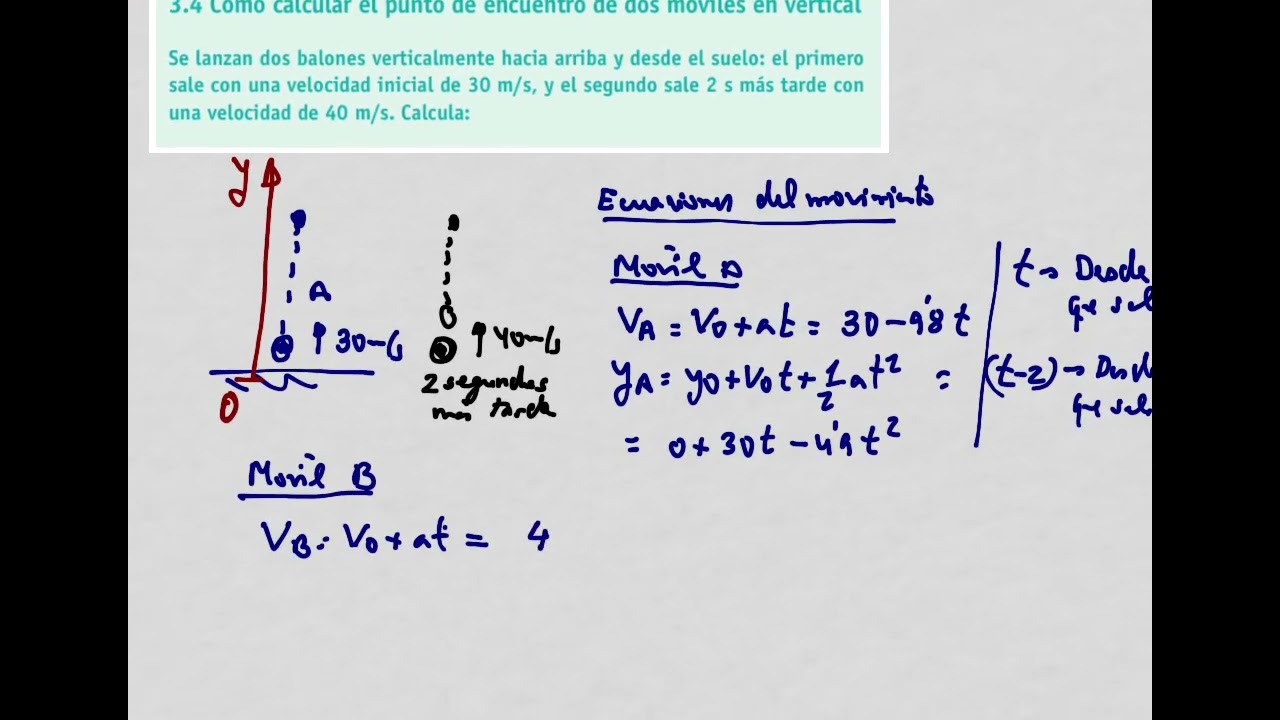 3.4 Cómo calcular el punto de encuentro de dos móviles en vertical
Se lanzan dos balones verticalmente hacia arriba y desde el suelo: el primero
sale con una velocidad inicial de 30 m/s, y el segundo sale 2 s más tarde con
una velocidad de 40 m/s. Calcula:
y
A
30 m/s
0
40 m/s
2 segundos
más tarde
Ecuaciones del movimiento
Movil A
VA = V0 + at = 30 - 9'8 t
yA = y0 + V0 t + 1/2 at² =
= 0 + 30t - 4'9 t²
t → Desde
que sal
(t-2) → Desde
que sal
Movil B
VB = V0 + at = 4